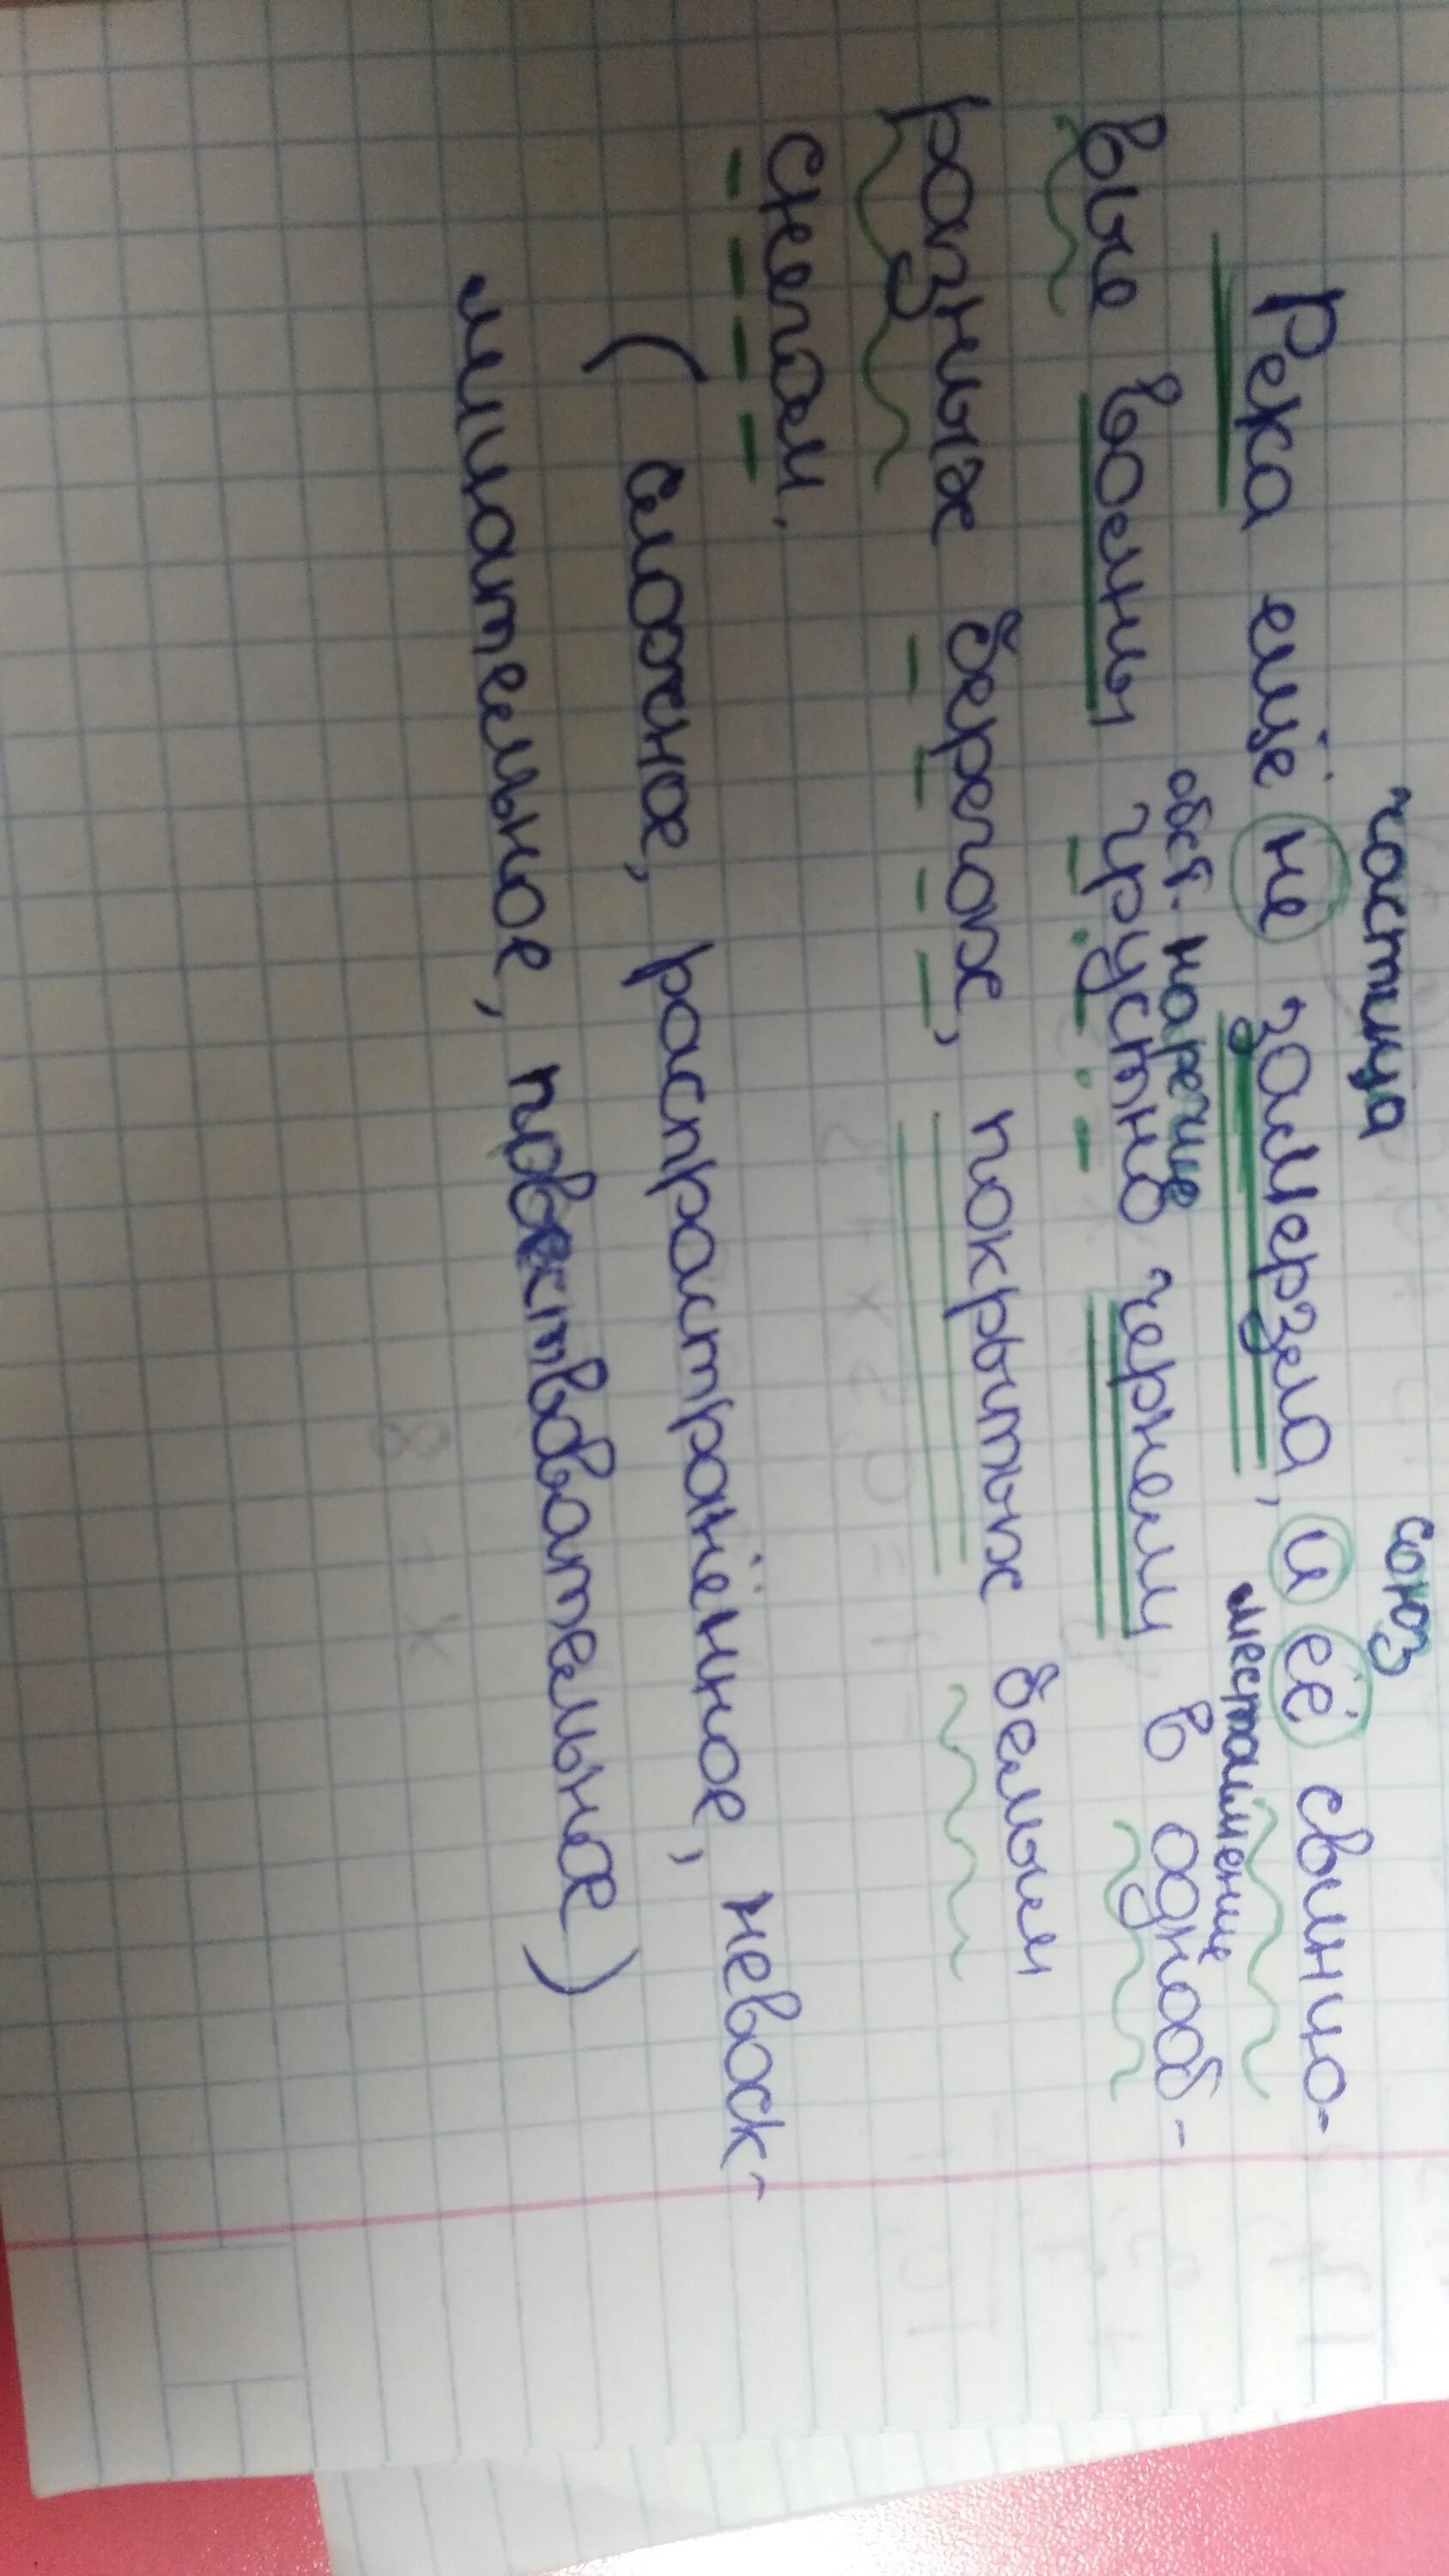 частица союз
Река ещё не замерзла, и её свинцо-
обст. наречие местоимение
вые волны грустно чернели в однооб-
разных берегах, покрытых белым
снегом.
( сложное, распрастранённое, невоск-
лицательное, повествовательное)